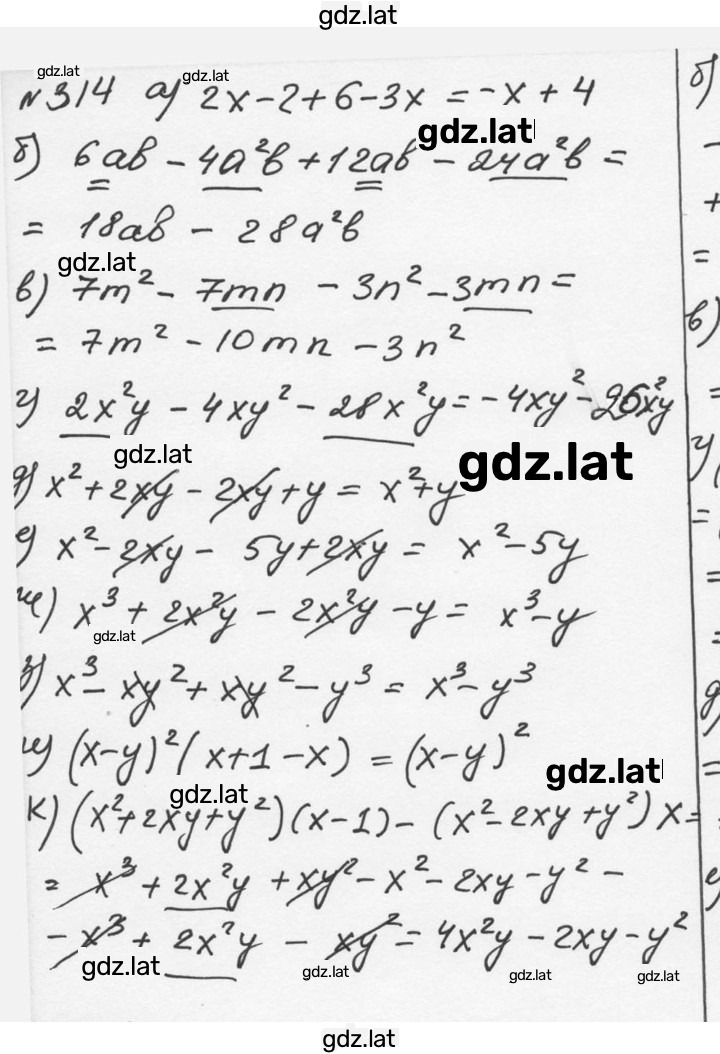 gdz.lat
gdz.lat
gdz.lat
№314 а) 2x-2+6-3x = -x+4
gdz.lat
б) 6ab - 4a²b + 12ab - 24a²b =
= 18ab - 28a²b
gdz.lat
в) 7m² - 7mn - 3n² - 3mn =
= 7m² - 10mn - 3n²
г) 2x²y - 4xy² - 28x²y = -4xy² - 26x²y
gdz.lat
gdz.lat
д) x² + 2xy - 2xy + y = x² + y
е) x² - 2xy - 5y + 2xy = x² - 5y
ж) x³ + 2x²y - 2x²y - y = x³ - y
gdz.lat
з) x³ - xy² + xy² - y³ = x³ - y³
и) (x-y)²(x+1-x) = (x-y)²
gdz.lat
gdz.lat
к) (x²+2xy+y²)(x-1) - (x²-2xy+y²)x =
= x³ + 2x²y + xy² - x² - 2xy - y² -
- x³ + 2x²y - xy² = 4x²y - 2xy - y²
gdz.lat
gdz.lat
gdz.lat
gdz.lat
gdz.lat
б)
-
+
=
в)
=
=
=
=
д)
=
е)